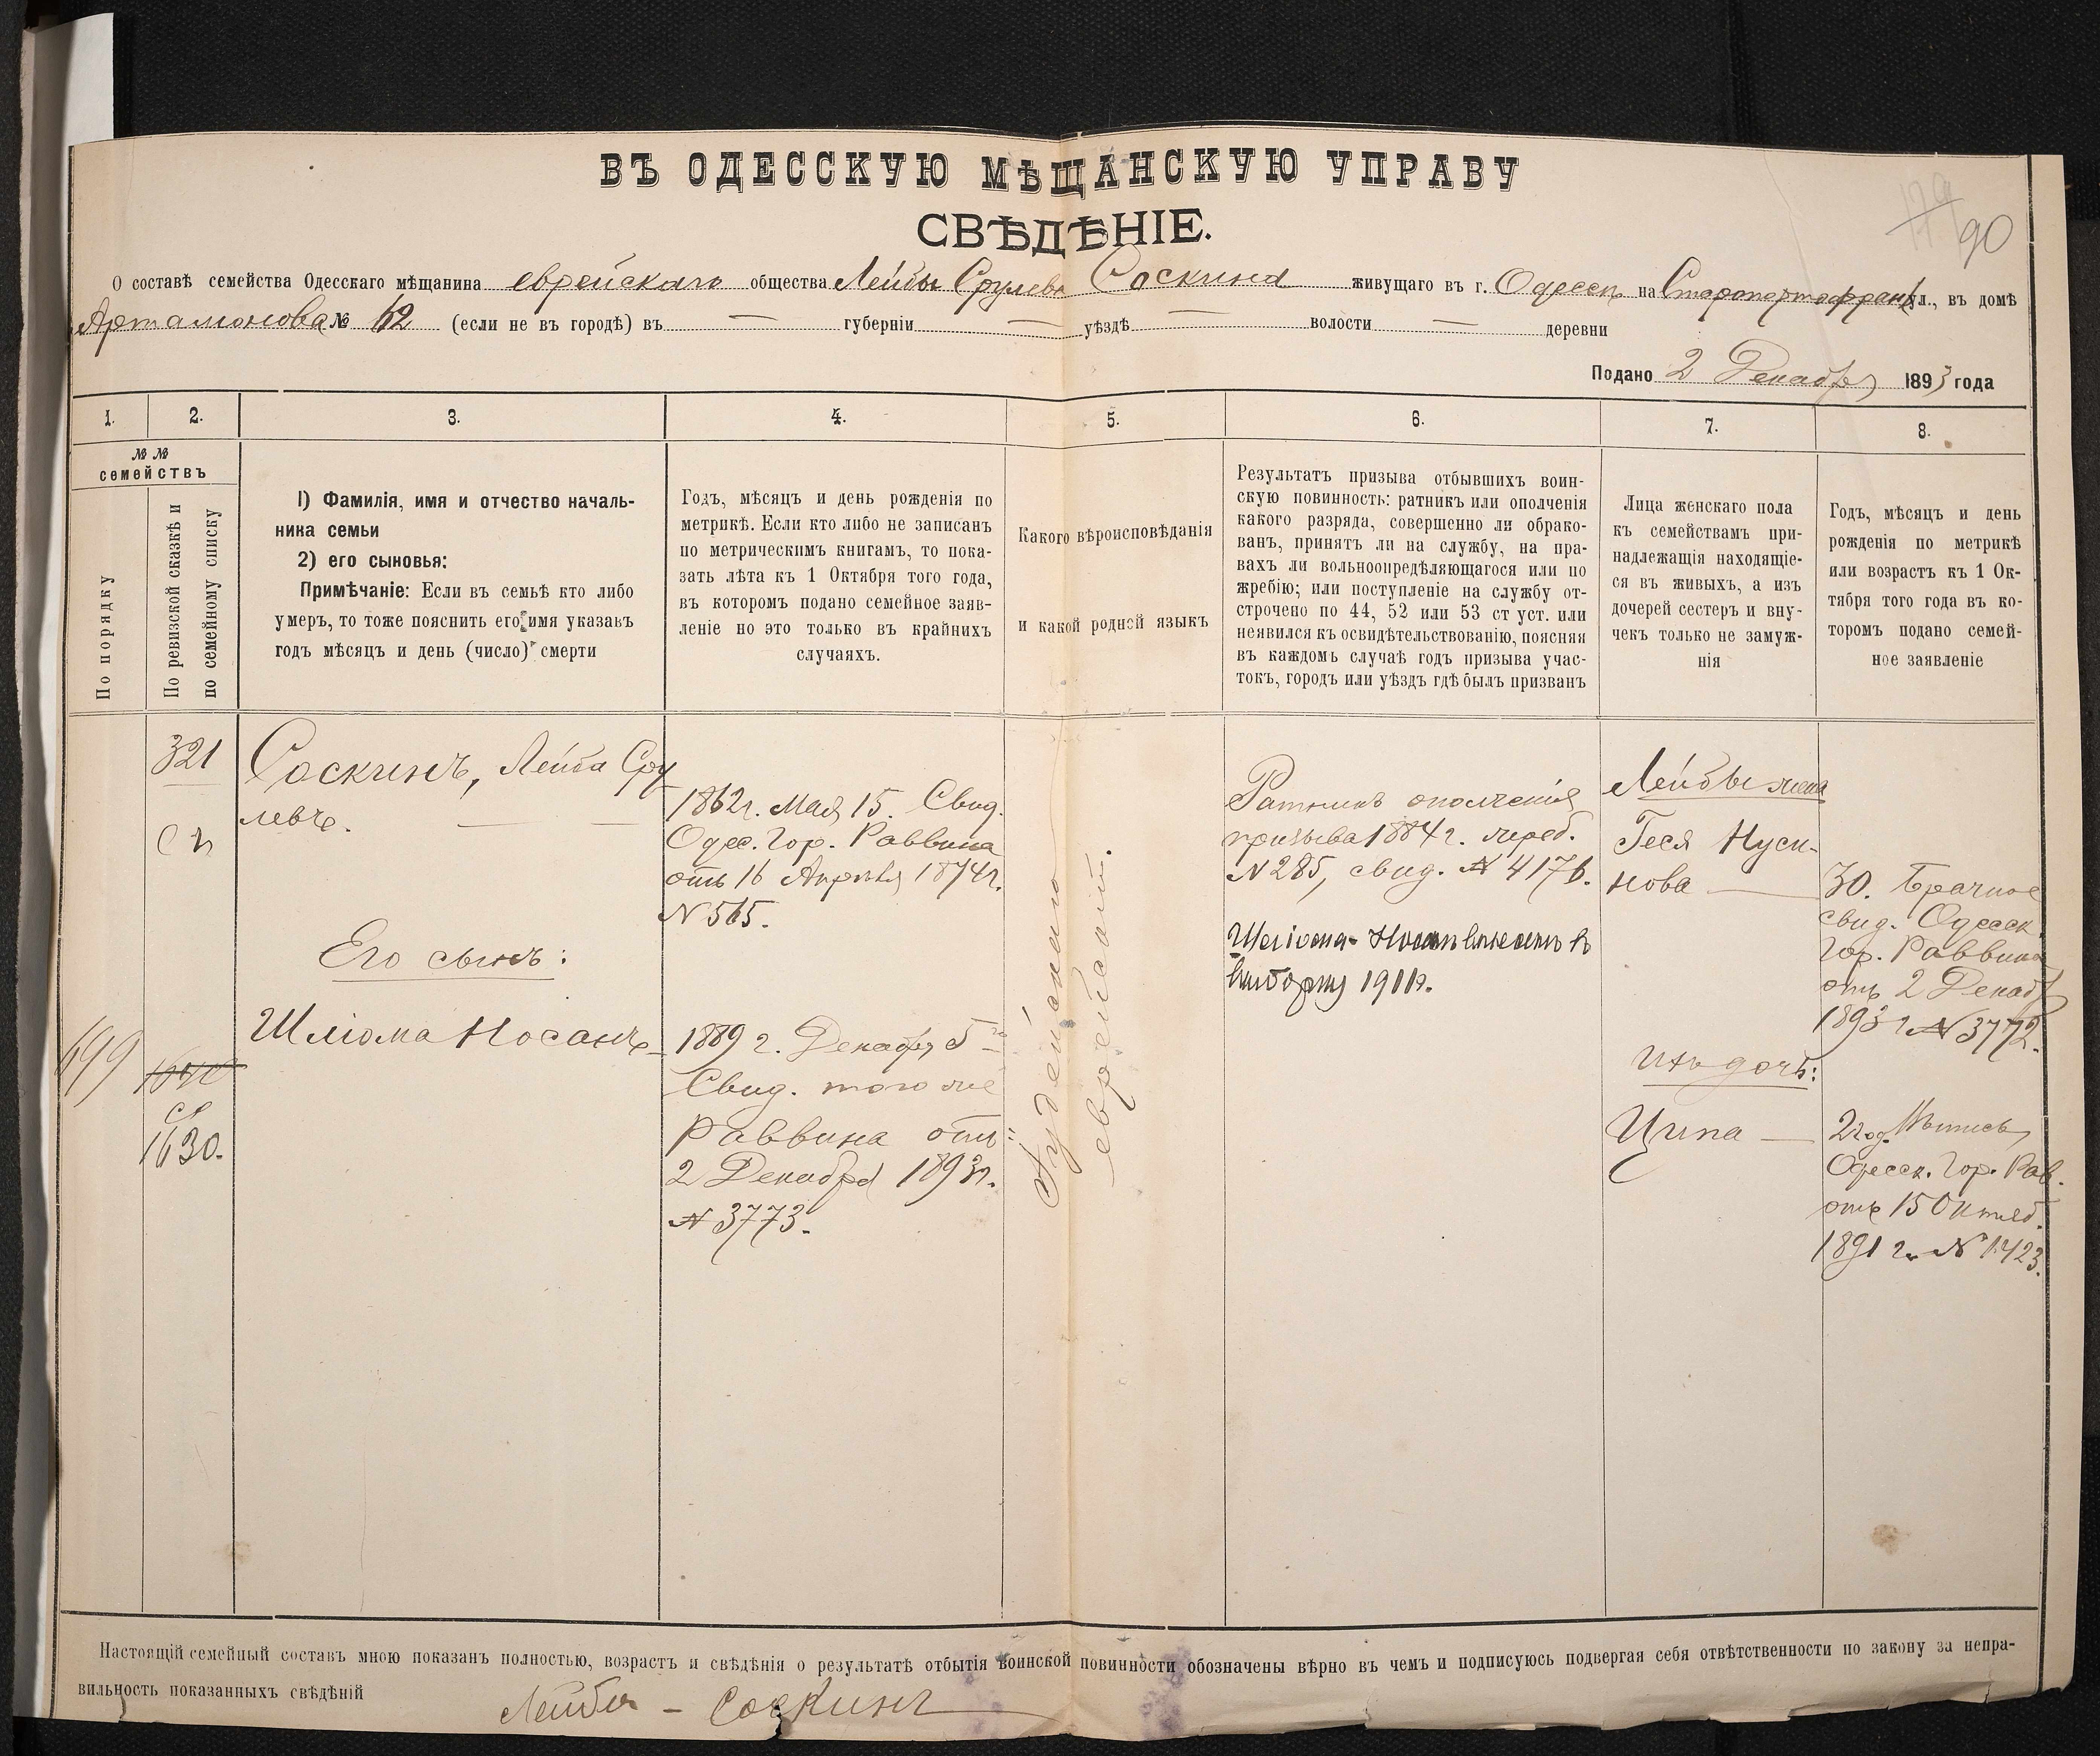 ВЪ ОДЕССКУЮ МѢЩАНСКУЮ УПРАВУ
СВѢДѢНІЕ.
90
О составѣ семейства Одесскаго мѣщанина еврейскаго общества Лейбы Срулева Соскина живущаго въ г. Одессѣ на Старопортофранк ул., въ домѣ
Артамонова № 62 (если не въ городѣ) въ — губерніи — уѣздѣ — волости — деревни
Подано 2 Декабря 1893 года
1. 2. 3. 4. 5. 6. 7. 8.
№ №
семействъ
По порядку
По ревизской сказкѣ и
по семейному списку
1) Фамилія, имя и отчество началь-
ника семьи
2) его сыновья:
Примѣчаніе: Если въ семьѣ кто либо
умеръ, то тоже пояснить его имя указавъ
годъ мѣсяцъ и день (число) смерти
Годъ, мѣсяцъ и день рожденія по
метрикѣ. Если кто либо не записанъ
по метрическимъ книгамъ, то пока-
зать лѣта къ 1 Октября того года,
въ которомъ подано семейное заяв-
леніе но это только въ крайнихъ
случаяхъ.
Какого вѣроисповѣданія
и какой родной языкъ
Результатъ призыва отбывшихъ воин-
скую повинность: ратникъ или ополченія
какого разряда, совершенно ли обрако-
ванъ, принятъ ли на службу, на пра-
вахъ ли вольноопредѣляющагося или по
жребію; или поступленіе на службу от-
строчено по 44, 52 или 53 ст уст. или
неявился къ освидѣтельствованію, поясняя
въ каждомъ случаѣ годъ призыва учас-
токъ, городъ или уѣздъ гдѣ былъ призванъ
Лица женскаго пола
къ семействамъ при-
надлежащія находящіе-
ся въ живыхъ, а изъ
дочерей сестеръ и вну-
чекъ только не замуж-
нія
Годъ, мѣсяцъ и день
рожденія по метрикѣ
или возрастъ къ 1 Ок-
тября того года въ ко-
торомъ подано семей-
ное заявленіе
321
699
1630.
Соскинъ, Лейба Сру
левъ. — —
Его сынъ:
Шліома Носанъ
1862г. Мая 15. Свид.
Одес. Гор. Раввина
отъ 16 Апрѣля 1874г.
N 565.
1889 г. Декабря 5
Свид. того же
Раввина отъ
2 Декабря 1893г.
N 3773.
Іудейскаго
еврейскій.
Ратникъ ополченія
призыва 1884 г. жреб.
N 285, свид. N 4176.
Шліома-Носанъ внесенъ въ
1911г.
Лейбы жена
Геся Нуси-
нова —
Ихъ дочь:
Ципа —
30. Брачное
свид. Одесск.
Гор. Раввина
отъ 2 Декаб
1893 г. N 3772.
2 год.
Одесск. Гор. Рав.
отъ 15 Октяб.
1891 г. N 1423.
Настоящій семейный составъ мною показанъ полностью, возрастъ и свѣдѣнія о результатѣ отбытія воинской повинности обозначены вѣрно въ чемъ и подписуюсь подвергая себя отвѣтственности по закону за непра-
вильность показанныхъ свѣдѣній
Лейба - Соскинъ